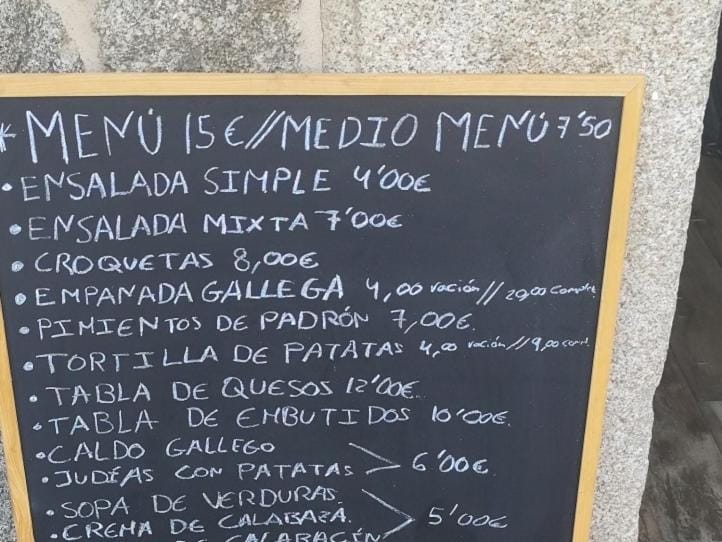 *MENÚ 15€//MEDIO MENÚ 7'50
• ENSALADA SIMPLE 4'00€
• ENSALADA MIXTA 7'00€
• CROQUETAS 8,00€
• EMPANADA GALLEGA 4,00 ración // 20,00
• PIMIENTOS DE PADRÓN 7,00€.
• TORTILLA DE PATATAS 4,00 ración // 9,00
• TABLA DE QUESOS 12'00€.
• TABLA DE EMBUTIDOS 10'00€.
• CALDO GALLEGO
• JUDÍAS CON PATATAS > 6'00€
• SOPA DE VERDURAS.
• CREMA DE CALABAZA. > 5'00€
DE CALABACÍN